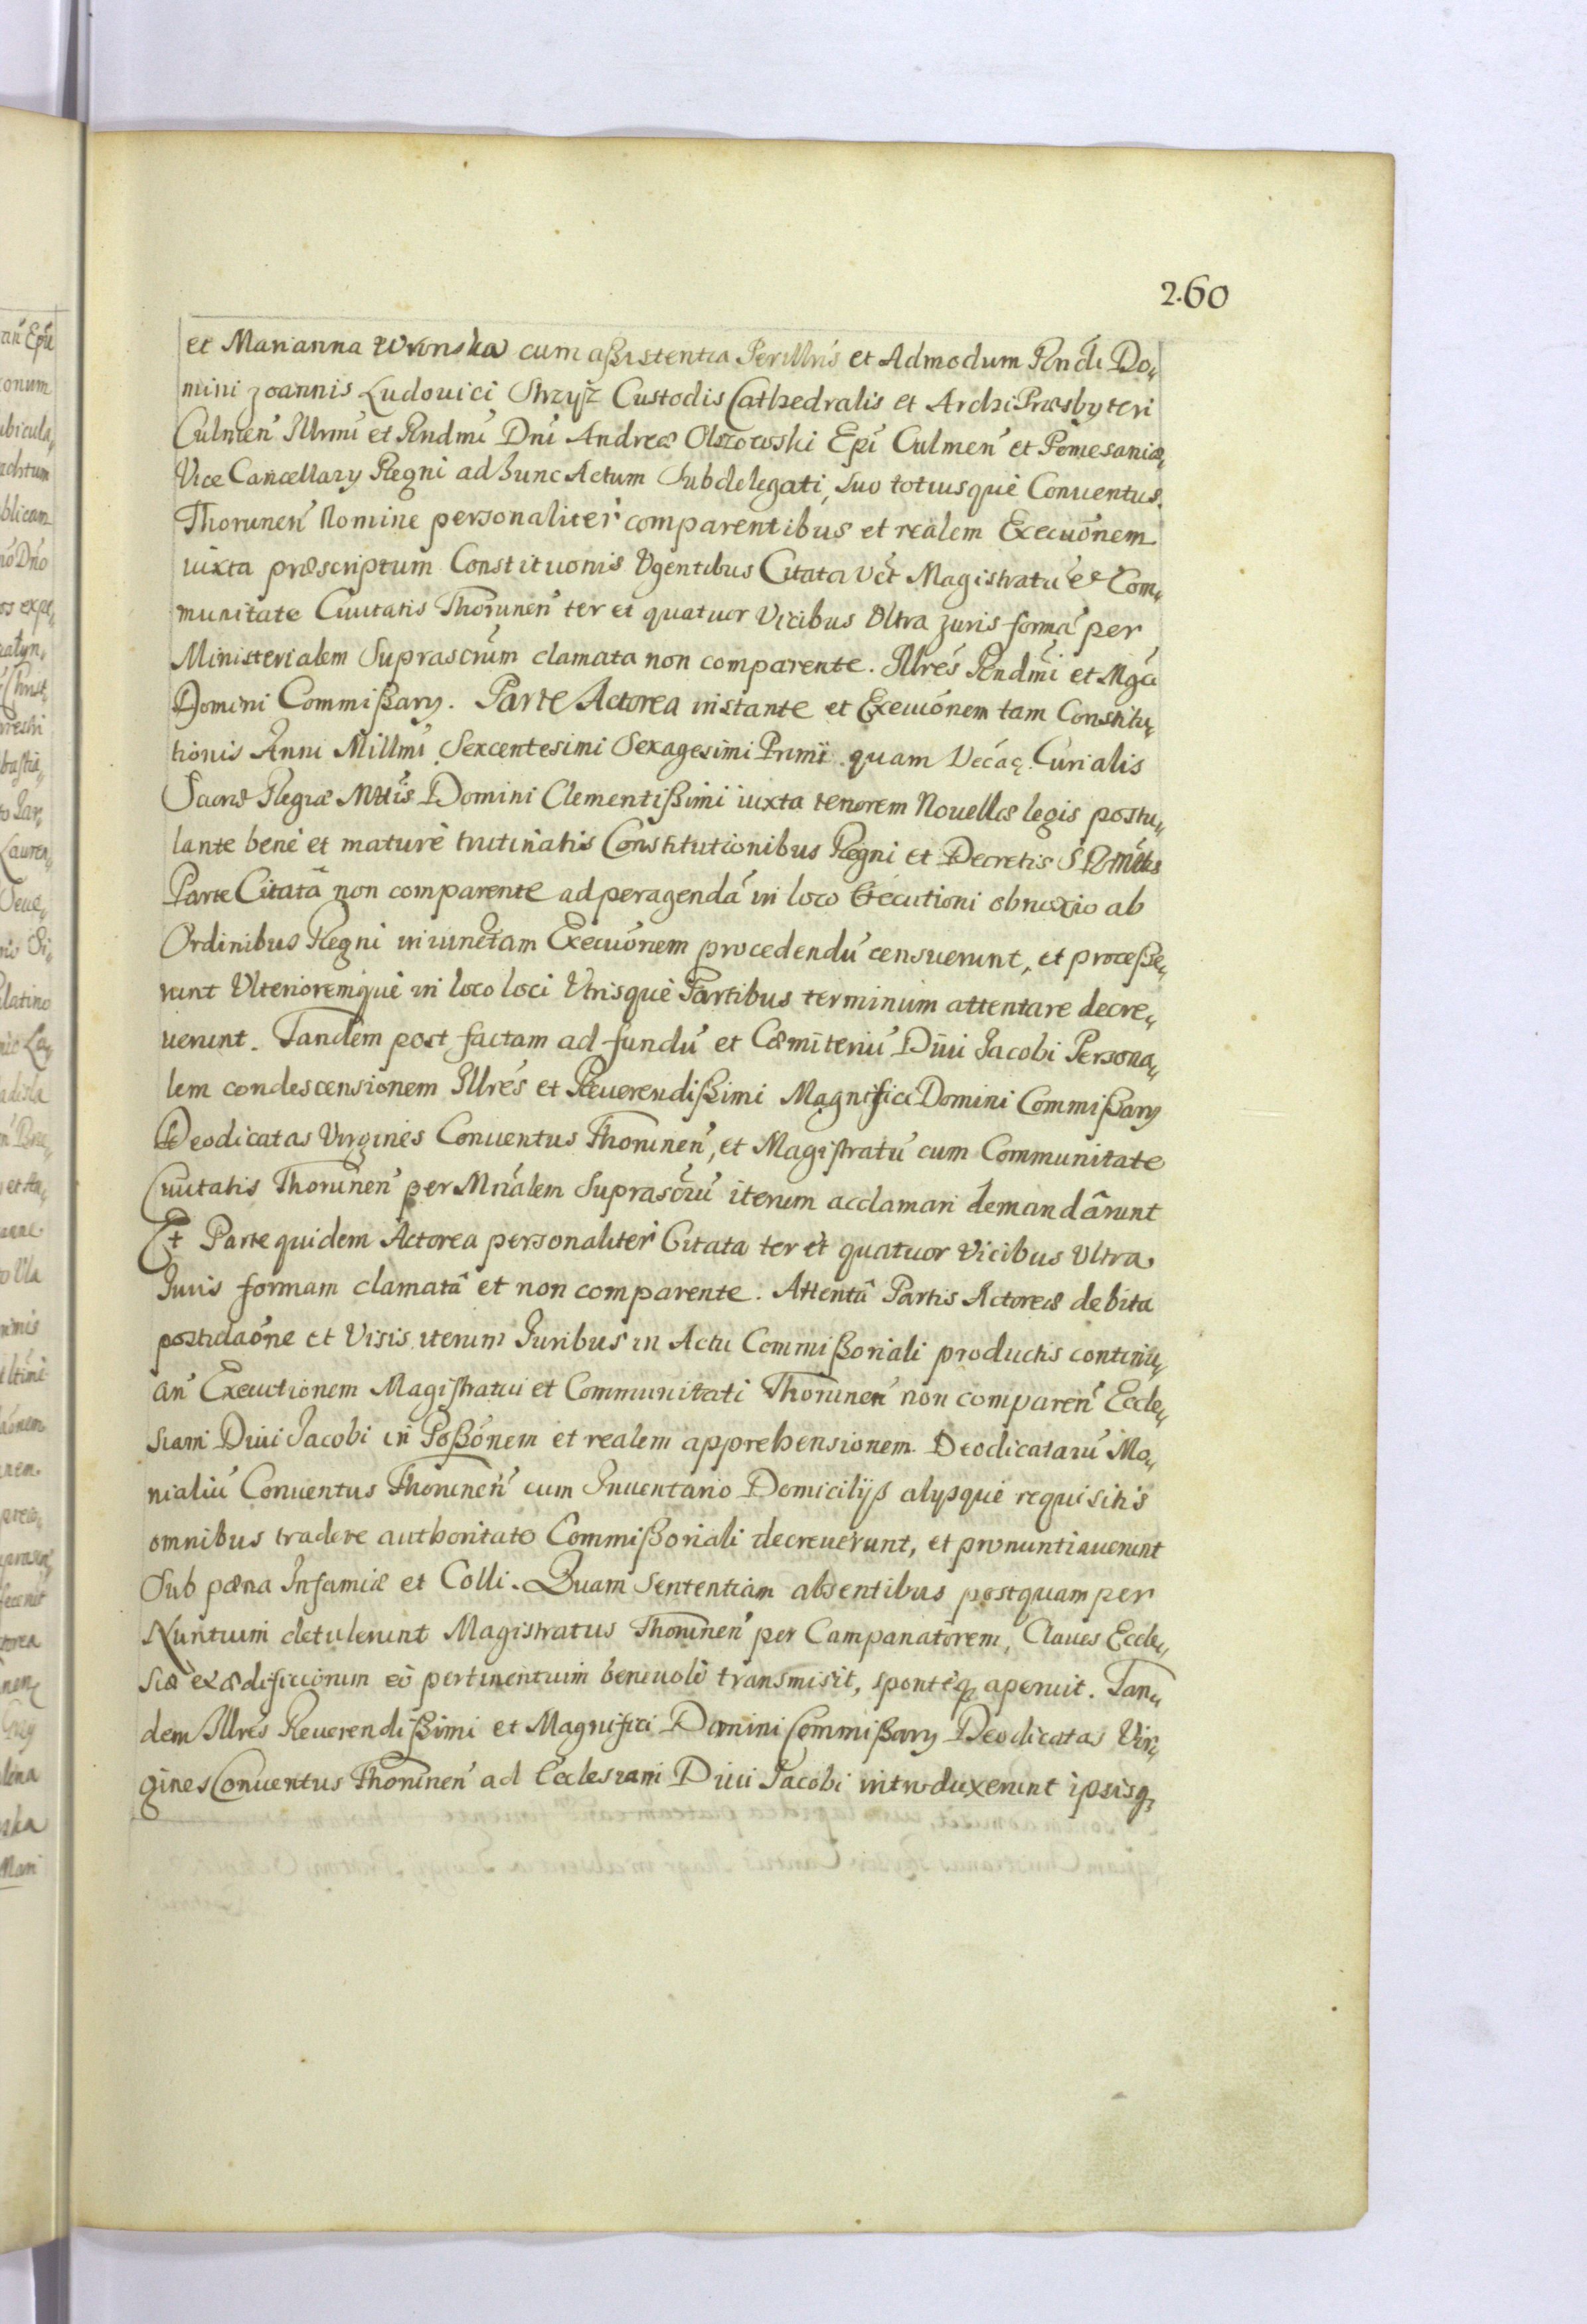 260
et Marianna Wronska cum aßistentia Perillris et Admodum Rndi Do„
mini Joannis Ludouici Strzyż Custodis Cathedralis et ArchiPræsbyteri
Culmen̄ Illrmi et Rndmi Dni Andreæ Olszowski Epi Culmen̄ et Pomesaniæ,
Vice Cancellarÿ Regni ad hunc Actum Subdelegati, suo totiusquè Conuentus
Thorunen̄ Nomine personaliter comparentibus et realem Execuōnem
iuxta præscriptum Constituonis Vgentibus Citata verò Magistratu et Com„
munitate Ciuitatis Thorunen̄ ter et quatuor Vicibus Vltra Juris formā per
Ministerialem Suprascrūm clamata non comparente. Illrēs Rndmi et Mgci
Domini Commißarÿ. Parte Actorea instante et Execuōnem tam Constitu„
tionis Anni Millmi Sexcentesimi Sexagesimi Primi quam Curialis
Sacræ Regiæ Mttis Domini Clementißimi iuxta tenorem Nouellæ legis postu„
lante benè et maturè trutinatis Constitutionibus Regni et Decretis S R Mttis
Parte Citatâ non comparente ad peragendā in loco Executioni obnoxio ab
Ordinibus Regni iniunctam Execuōnem procedendū censuerunt, et proceße„
runt Vlterioremquè in loco loci Vtrisquè Partibus terminum attentare decre„
uerunt. Tandem post factam ad fundū et Cœmiteriū Diui Jacobi Persona„
lem condescensionem Illrēs et Reuerendißimi Magnifici Domini Commißarÿ
Deodicatas Virgines Conuentus Thorunen̄, et Magistratū cum Communitate
Ciuitatis Thorunen̄ per Mnālem Suprascrū iterum acclamari demandârunt
Et Parte quidem Actorea personaliter Citata ter et quatuor Vicibus Vltra
Juris formam clamatâ et non comparente. Attentâ Partis Actoreæ debita
postulaōne et Visis iterum Juribus in Actu Commißoriali productis continu„
an̄ Executionem Magistratui et Communitati Thorunen̄ non comparen̄ Eccle„
siam Diui Jacobi in Poßōnem et realem apprehensionem Deodicatarū Mo„
nialiū Conuentus Thorunen̄ cum Inuentario Domicilijß alijsquè requisitis
omnibus tradere authoritate Commißoriali decreuerunt, et pronuntiauerunt
Sub pœna Infamiæ et Colli. Quam Sententiam absentibus postquam per
Nuntium detulerunt Magistratus Thorunen̄ per Campanatorem, Claues Eccle„
siæ et ædificiorum eò pertinentium beneuolè transmisit, sponteq aperuit. Tan„
dem Illrēs Reuerendißimi et Magnifici Domini Commißarÿ Deodicatas Vir„
gines Conuentus Thorunen̄ ad Ecclesiam Diui Jacobi introduxerunt ipsisq,